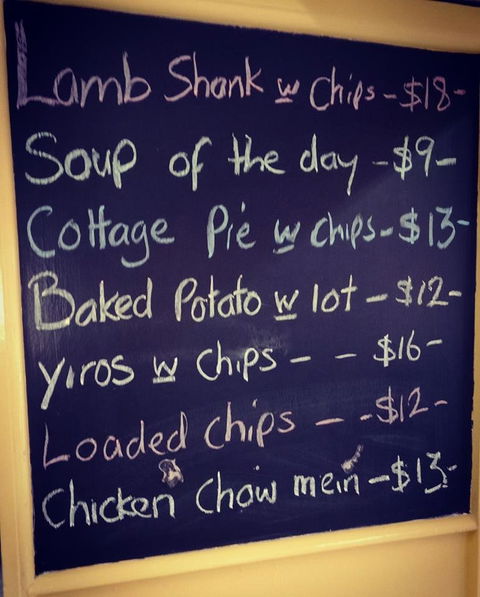 Lamb Shank w Chips - $18 -
Soup of the day - $9 -
Cottage Pie w chips - $13 -
Baked Potato w lot - $12 -
Yiros w Chips - - $16 -
Loaded chips - - $12 -
Chicken Chow mein - $13 -